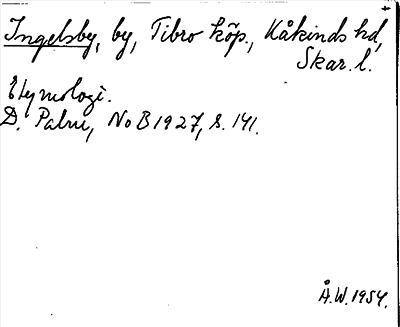 Ingelsby, by, Tibro köp., Kåkinds hd,
Skar. l.
Etymologi.
D. Palm, NoB 1927, s. 141.
Å.W. 1954.